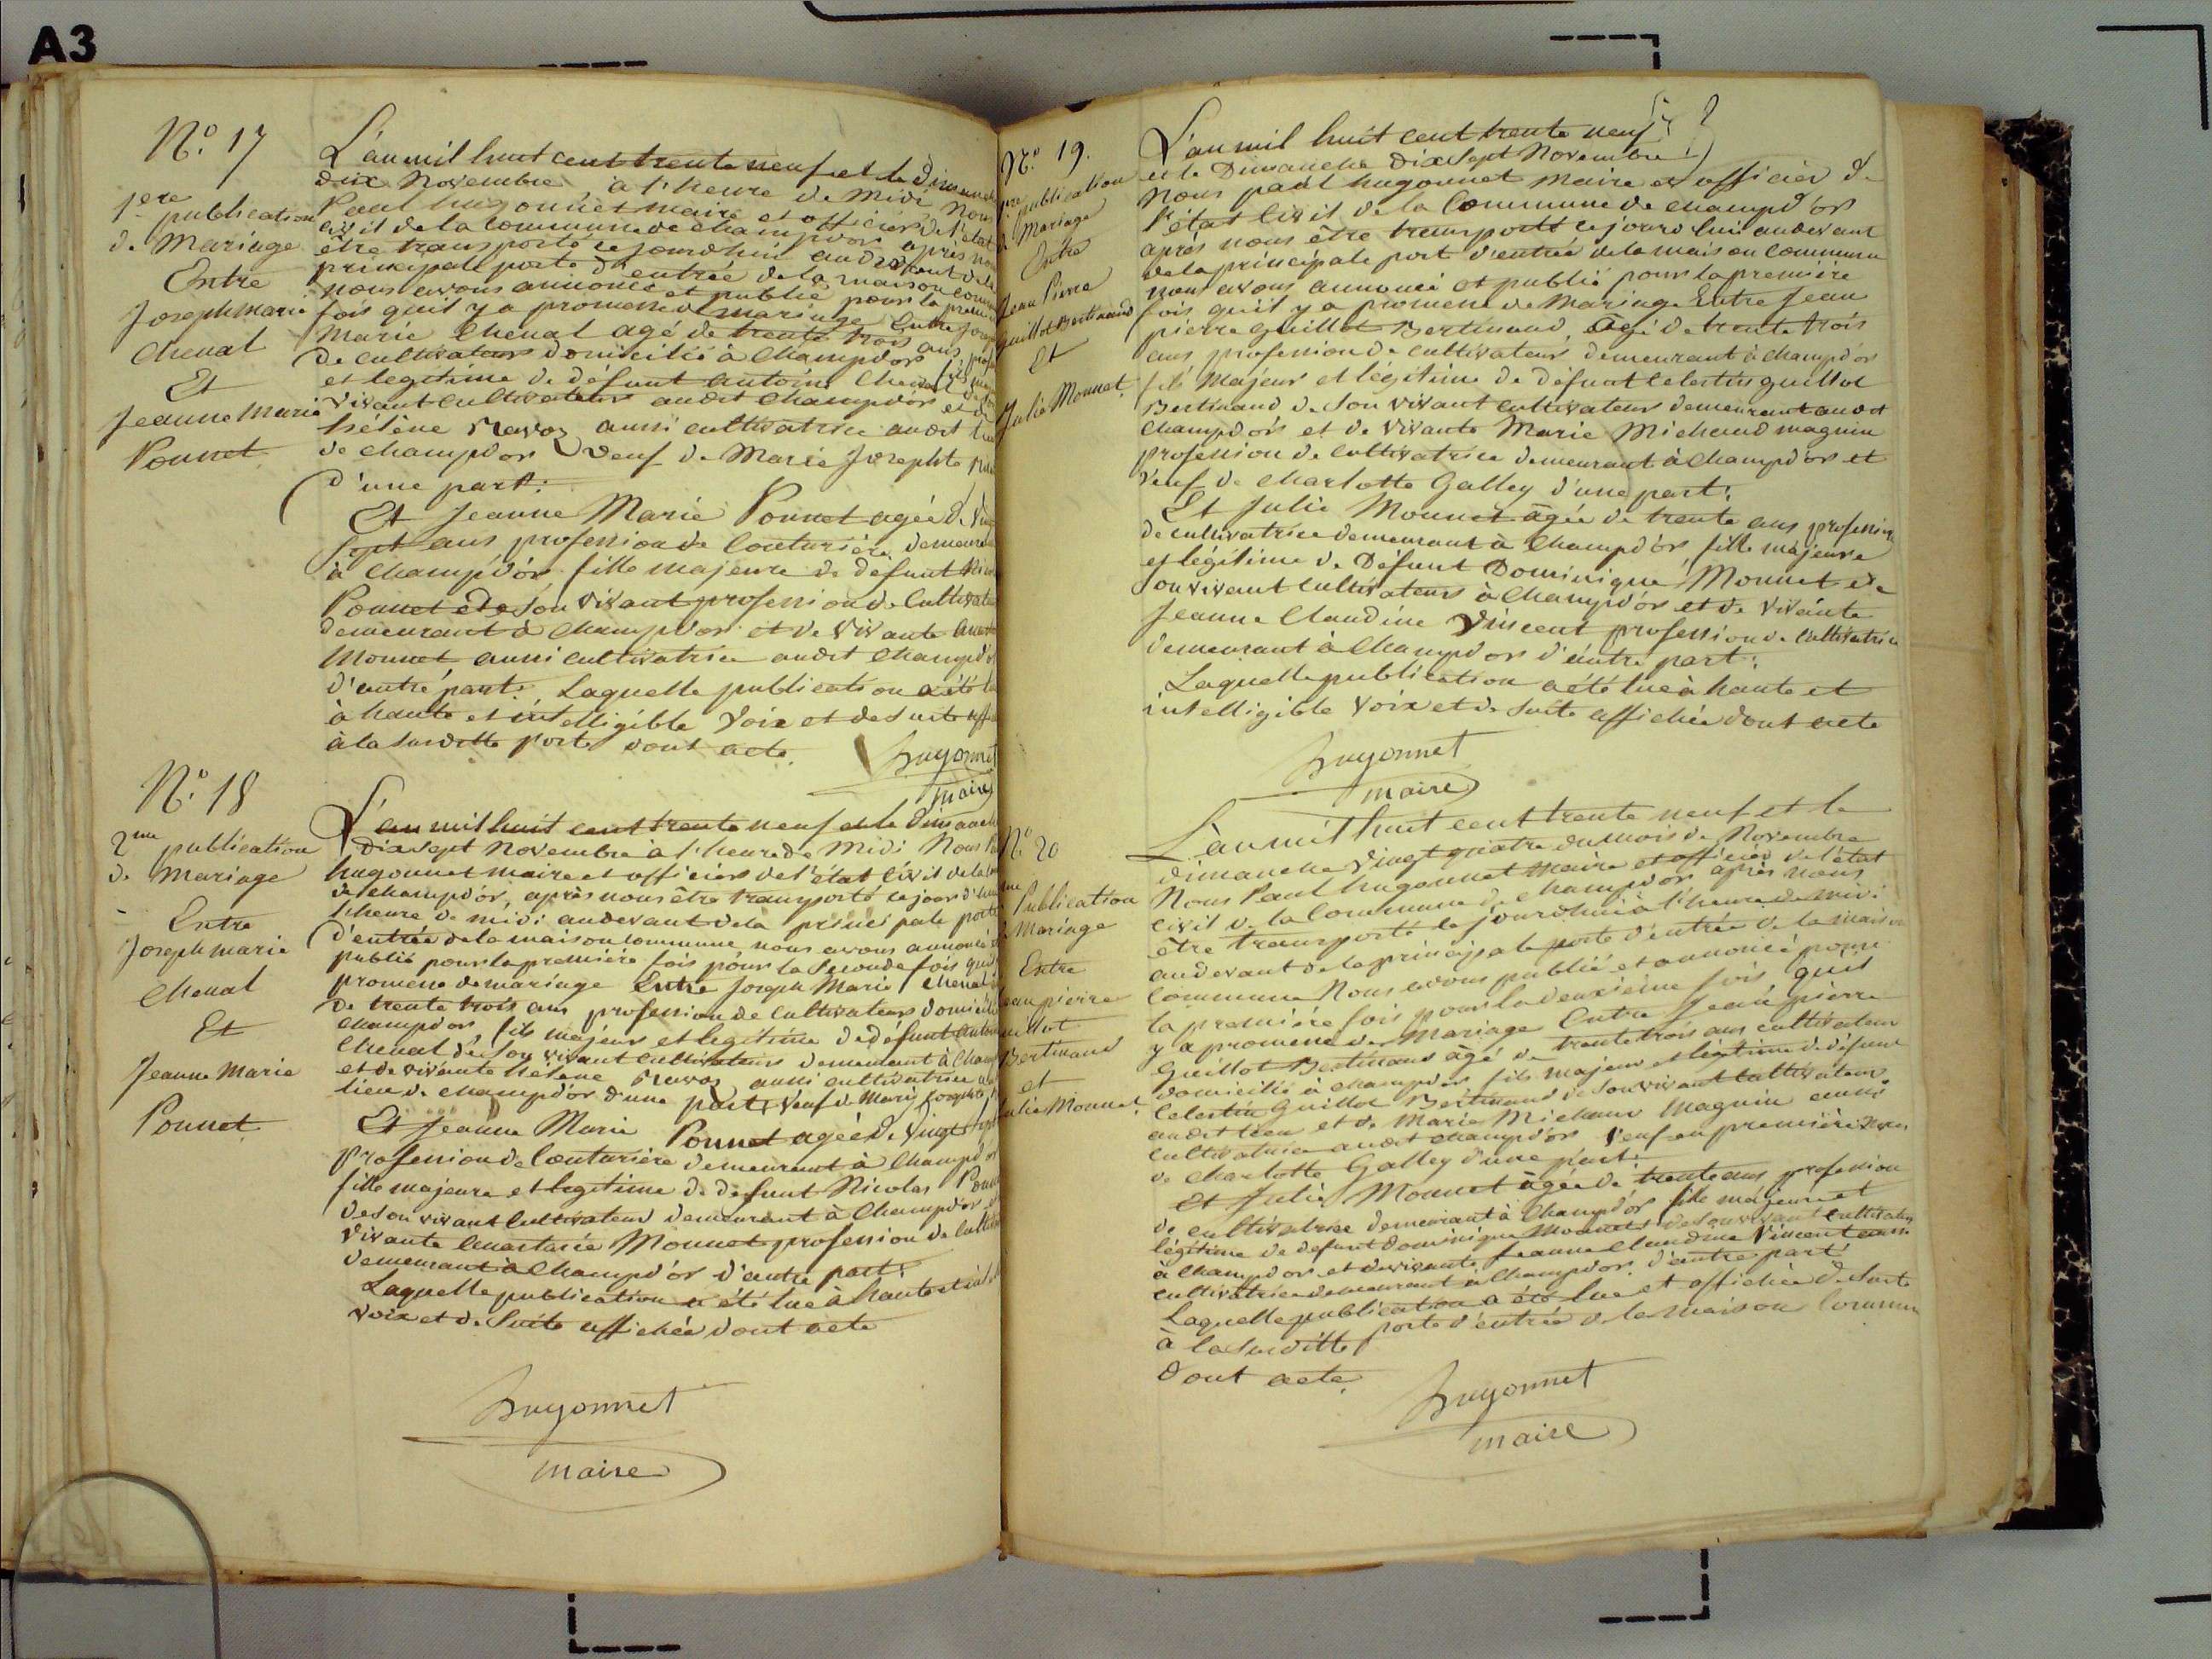 A3
N° 17
1ere publication
de Mariage
Entre
Joseph marie
Chenal
Et
Jeanne Marie
Ponnet
L'an mil huit cent trente neuf et le Dimanche
dix Novembre, à l'heure de Midi Nous
Paul hugonnet maire et officier de l'état
civil de la Commune de Champdor après nous
être transporté ce jourdhui au devant de la
principale porte d'entrée de la maison
nous avons annoncé et publié pour la
fois quil y a promesse de mariage Entre
Marie Chenal agé de trente trois ans
de Cultivateur domicilié à Champdor fils
et legitime de défunt antoine Chenal de son
vivant Cultivateur audit Champdor et de
hélène Ravoz aussi cultivatrice audit
de Champdor veuf de Marie Josephte
d'une part:
Et Jeanne Marie Ponnet agée de
Sept ans profession de Couturière demeurant
à Champdor, fille majeure de defunt
Ponnet de Son Vivant profession de Cultivateur
demeurant à Champdor et de Vivante
Monnet aussi Cultivatrice audit Champdor
d'autre part. Laquelle publication a été
à haute et intelligible Voix et de Suite
à la Susditte porte dont acte.
hugonnet
maire
N° 18
2me publication
de Mariage
Entre
Joseph marie
Chenal
Et
Jeanne Marie
Ponnet
L'an mil huit cent trente neuf et le Dimanche
dix sept Novembre à l'heure de Midi Nous
hugonnet maire et officier de l'état Civil de la
de Champdor, après nous être transporté ce jour d'hui
l'heure de midi audevant de la principale porte
d'entrée de la maison Commune nous avons annoncé
publié pour la premiere fois pour la Seconde fois quil
promesse de mariage Entre Joseph Marie Chenal
de trente trois ans profession de Cultivateur domicilié
Champdor, fils majeur et legitime de défunt
Chenal de Son vivant Cultivateur demeurant à
et de vivante hélène Ravoz aussi cultivatrice
lieu de Champdor d'une part, veuf de Marie Josephte
Et Jeanne Marie Ponnet agée de Vingt Sept
Profession de Couturière demeurant à Champdor
fille majeure et legitime de defunt Nicolas Ponnet
de son vivant Cultivateur demeurant à Champdor et
Vivante Anastasie Monnet profession de
demeurant à Champdor d'autre part.
Laquelle publication a été lue à haute et
voix et de Suite affichée dont acte
hugonnet
maire
N° 19.
publication
Mariage
Entre
Jean Pierre
guillot Bertinand
Et
Julie Monnet
L'an mil huit cent trente neuf
et le Dimanche dix Sept Novembre
Nous paul hugonnet Maire et officier de
l'état Civil de la Commune de Champdor
après nous être transporté ce jourdhui audevant
de la principale port d'entrée de la maison Commune
nous avons annoncé et publié pour la première
fois quil y a promesse de Mariage Entre Jean
pierre guillot Bertinand, âgé de trente trois
ans profession de Cultivateur demeurant à Champdor
fils majeur et légitime de défunt Celestin guillot
Bertinand de Son Vivant Cultivateur demeurant audit
Champdor et de Vivante Marie Michaud magnin
profession de Cultivatrice demeurant à Champdor et
Veuf de Charlotte Galley d'une part.
Et Julie Monnet âgée de trente ans profession
de cultivatrice demeurant à Champdor fille majeure
et légitime de Défunt Dominique Monnet de
Son vivant Cultivateur à Champdor et de Vivante
Jeanne Claudine Vincent profession de Cultivatrice
demeurant à Champdor d'autre part:
Laquelle publication a été lue à haute et
intelligible Voix et de Suite affichée dont acte
hugonnet
maire
N° 20
Publication
Mariage
Entre
Jean pierre
guillot
Bertinand
et
Julie Monnet
L'an mil huit cent trente neuf et le
dimanche Vingt quatre du mois de Novembre
Nous Paul hugonnet Maire et officier de l'état
Civil de la Commune de Champdor après nous
être transporté ce jourdhui à l'heure de midi
audevant de la principale porte d'entrée de la maison
Commune Nous avons publié et annoncé pour
la première fois pour la deuxième fois quil
y a promesse de Mariage Entre Jean pierre
Guillot Bertinand âgé de trente trois ans cultivateur
domicilié à Champdor fils majeur et légitime de défunt
Celestin Guillot Bertinand de Son vivant Cultivateur
audit lieu et de Marie Michaud Magnin aussi
Cultivatrice audit Champdor Veuf en première
de Charlotte Galley d'une part.
Et Julie Monnet âgée de trente ans profession
de cultivatrice demeurant à Champdor fille majeure et
légitime de defunt Dominique Monnet de Son vivant Cultivateur
à Champdor et de vivante Jeanne Claudine Vincent aussi
cultivatrice demeurant à Champdor d'autre part
Laquelle publication a été lue et affichée de Suite
à la Susditte porte d'entrée de la maison Commune
dont acte.
hugonnet
maire